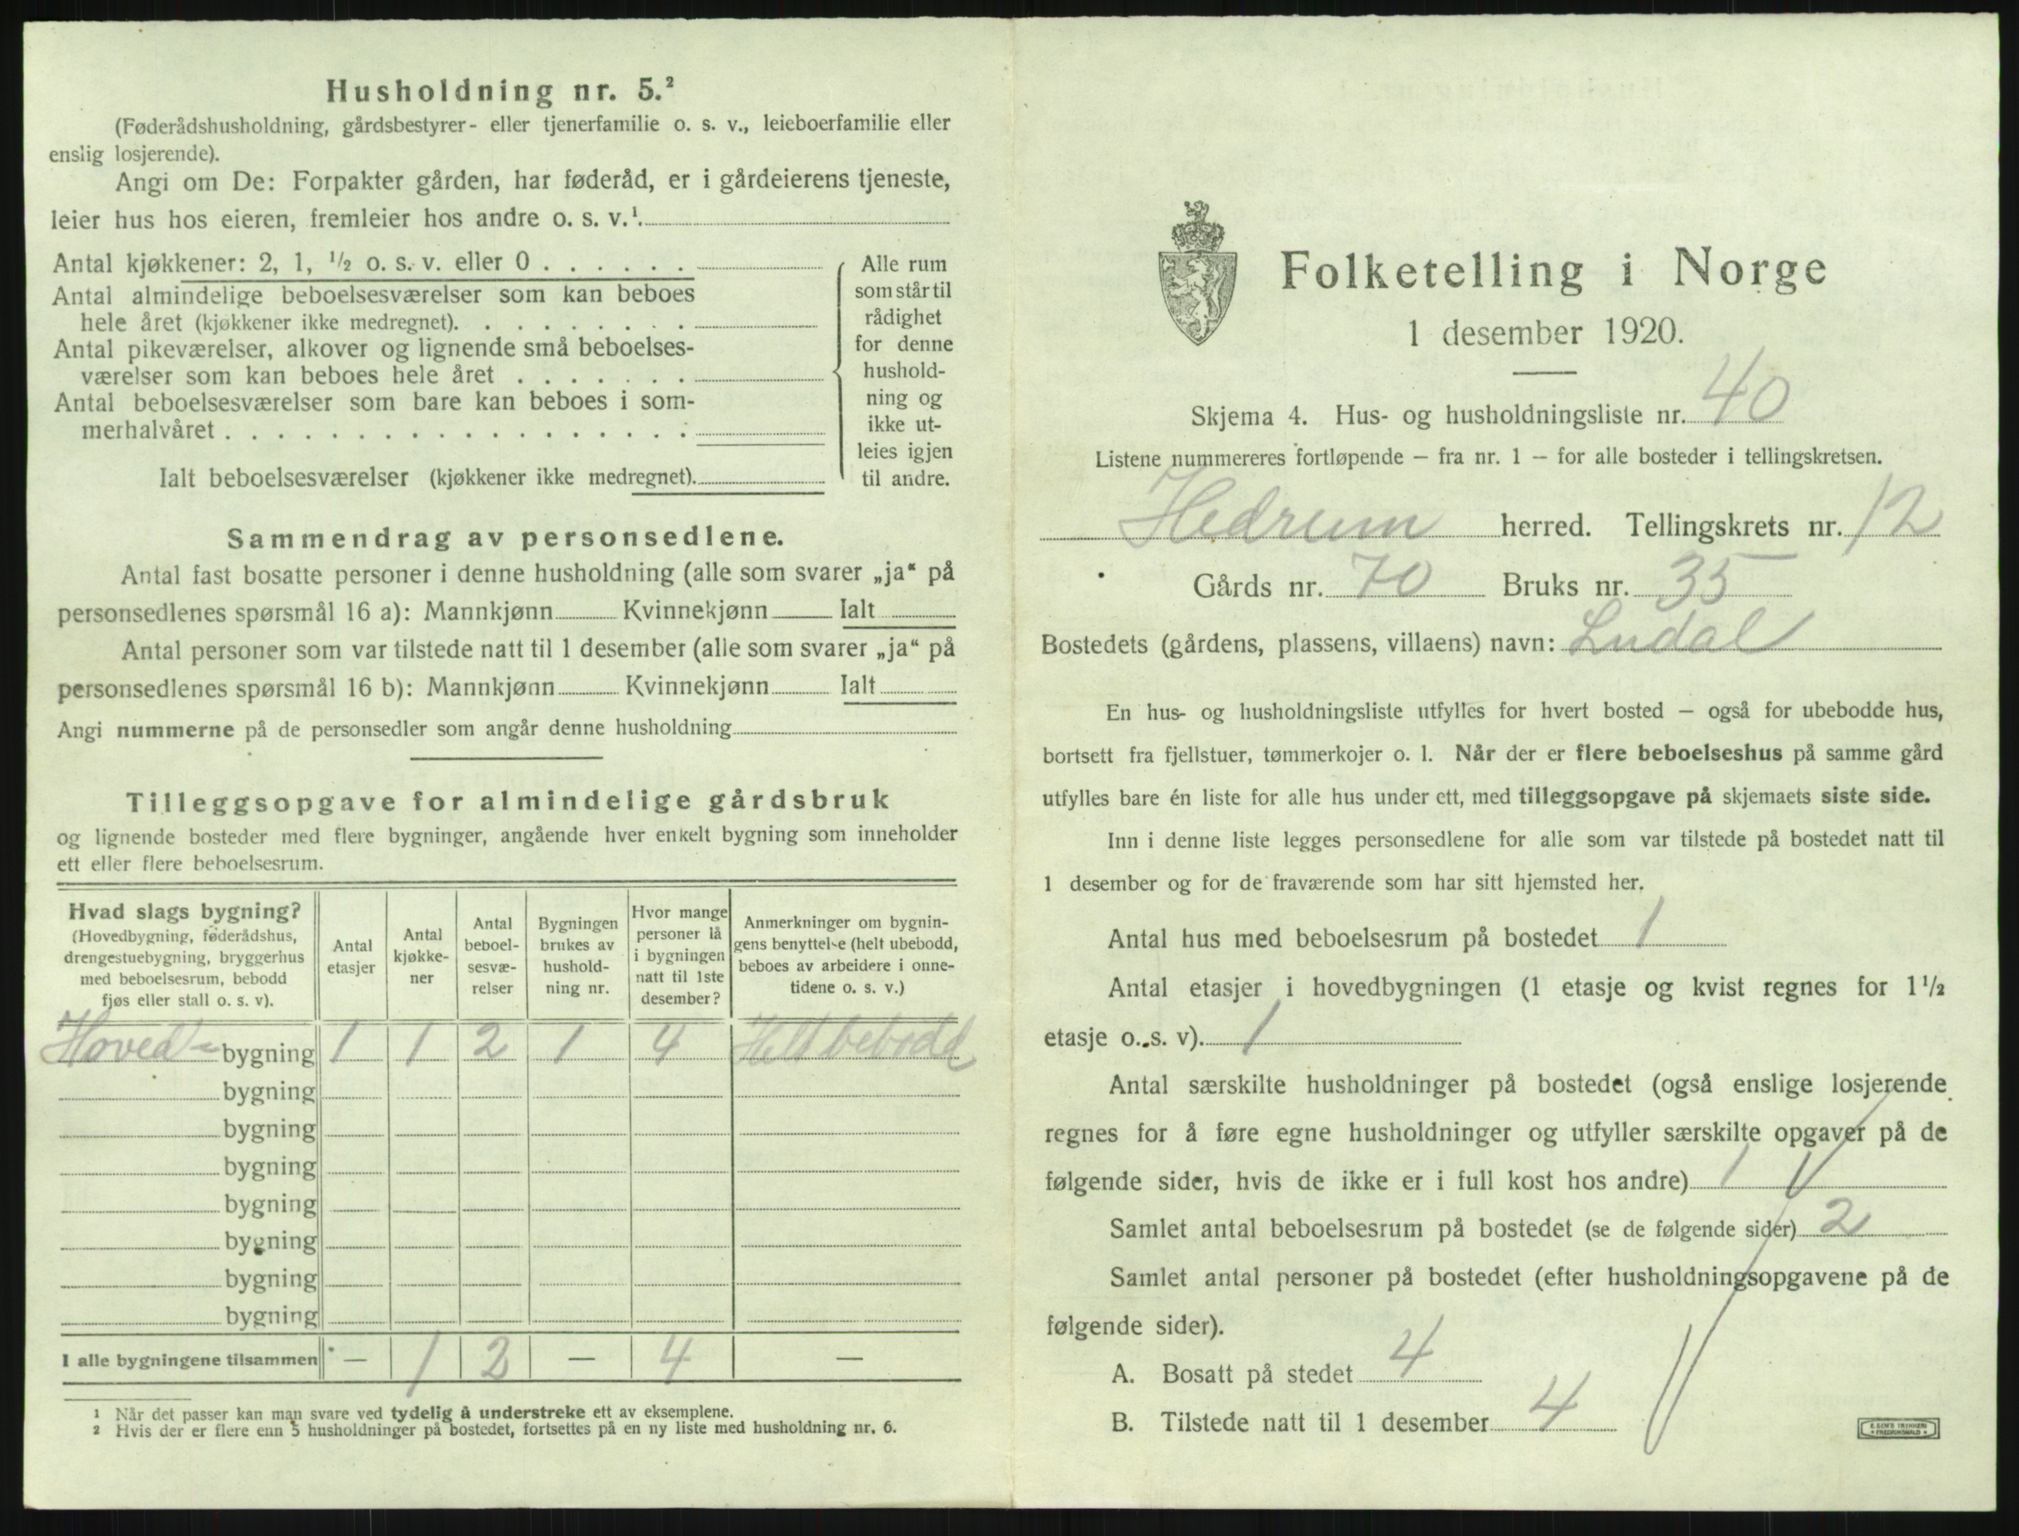 Husholdning nr. 5.²
(Føderådshusholdning, gårdsbestyrer- eller tjenerfamilie o. s. v., leieboerfamilie eller
enslig losjerende).
Angi om De: Forpakter gården, har føderåd, er i gårdeierens tjeneste,
leier hus hos eieren, fremleier hos andre o. s. v.¹.
Antal kjøkkener: 2, 1, ½ o. s. v. eller 0
Antal almindelige beboelsesværelser som kan beboes
hele året (kjøkkener ikke medregnet).
Antal pikeværelser, alkover og lignende små beboelses-
værelser som kan beboes hele året
Antal beboelsesværelser som bare kan beboes i som-
merhalvåret
Ialt beboelsesværelser (kjøkkener ikke medregnet).
Alle rum
som står til
rådighet
for denne
hushold-
ning og
ikke ut-
leies igjen
til andre.
Sammendrag av personsedlene.
Antal fast bosatte personer i denne husholdning (alle som svarer „ja“ på
personsedlenes spørsmål 16 a): Mannkjønn Kvinnekjønn Ialt
Antal personer som var tilstede natt til 1 desember (alle som svarer „ja“ på
personsedlenes spørsmål 16 b): Mannkjønn Kvinnekjønn Ialt
Angi nummerne på de personsedler som angår denne husholdning
Tilleggsopgave for almindelige gårdsbruk
og lignende bosteder med flere bygninger, angående hver enkelt bygning som inneholder
ett eller flere beboelsesrum.
Hvad slags bygning?
(Hovedbygning, føderådshus,
drengestuebygning, bryggerhus
med beboelsesrum, bebodd
fjøs eller stall o. s. v).
Antal
etasjer
Antal
kjøkke-
ner
Antal
beboel-
sesvæ-
relser
Bygningen
brukes av
hushold-
ning nr.
Hvor mange
personer lå
i bygningen
natt til 1ste
desember?
Anmerkninger om bygnin-
gens benyttelse (helt ubebodd,
beboes av arbeidere i onne-
tidene o. s. v.)
Hoved- bygning 1 1 2 1 4 Helt bebodd
bygning
bygning
bygning
bygning
bygning
bygning
bygning
I alle bygningene tilsammen — 1 2 — 4 —
¹ Når det passer kan man svare ved tydelig å understreke ett av eksemplene.
² Hvis der er flere enn 5 husholdninger på bostedet, fortsettes på en ny liste med husholdning nr. 6.
Folketelling i Norge
1 desember 1920.
Skjema 4. Hus- og husholdningsliste nr. 40
Listene nummereres fortløpende — fra nr. 1 — for alle bosteder i tellingskretsen.
Hedrum herred. Tellingskrets nr. 12
Gårds nr. 70 Bruks nr. 35
Bostedets (gårdens, plassens, villaens) navn: Lndal
En hus- og husholdningsliste utfylles for hvert bosted — også for ubebodde hus,
bortsett fra fjellstuer, tømmerkojer o. l. Når der er flere beboelseshus på samme gård
utfylles bare én liste for alle hus under ett, med tilleggsopgave på skjemaets siste side.
Inn i denne liste legges personsedlene for alle som var tilstede på bostedet natt til
1 desember og for de fraværende som har sitt hjemsted her.
Antal hus med beboelsesrum på bostedet 1
Antal etasjer i hovedbygningen (1 etasje og kvist regnes for 1½
etasje o. s. v). 1
Antal særskilte husholdninger på bostedet (også enslige losjerende
regnes for å føre egne husholdninger og utfyller særskilte opgaver på de
følgende sider, hvis de ikke er i full kost hos andre) 1
Samlet antal beboelsesrum på bostedet (se de følgende sider) 2
Samlet antal personer på bostedet (efter husholdningsopgavene på de
følgende sider).
A. Bosatt på stedet 4
B. Tilstede natt til 1 desember 4